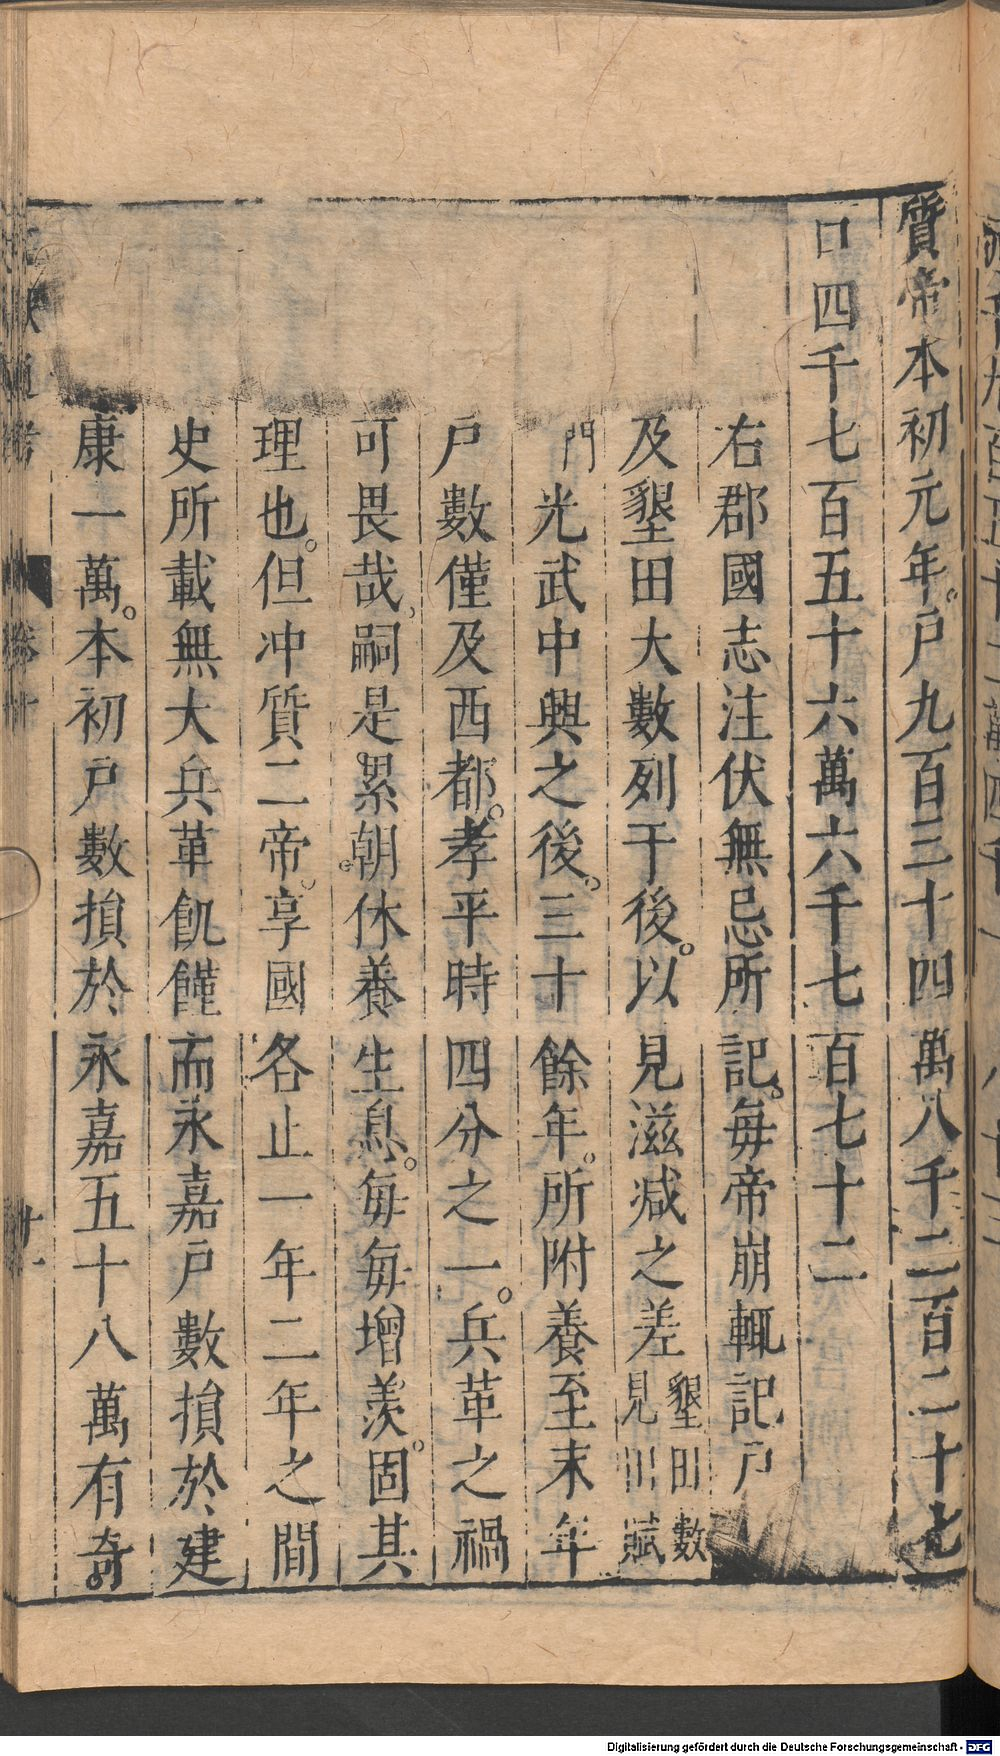 質帝本初元年。戸九百三十四萬八千二百二十七
口四千七百五十六萬六千七百七十二
右郡國志注伏無忌所記。每帝崩輒記戸
及墾田大數列于後。以見滋減之差墾田數見田賦
門光武中興之後。三十餘年。所附養至末年
戸數僅及西都。孝平時四分之一。兵革之禍
可畏哉、嗣是累朝。休養生息。每每增羨。固其
理也。但冲質二帝。享國各止一年二年之間
史所載無大兵革飢饉而永嘉戸數損於建
康一萬。本初戸數損於永嘉五十八萬有奇。
通考
卷十
廿一
Digitalisierung gefördert durch die Deutsche Forschungsgemeinschaft - DFG